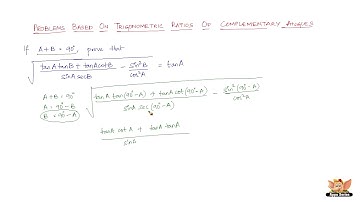 PROBLEMS BASED ON TRIGONOMETRIC RATIOS OF COMPLEMENTARY ANGLES
If A+B = 90°, prove that
√((tanA tanB + tanA cotB) / (sinA secB) − sin²B / cos²A) = tanA
A+B = 90°
A = 90°−B
B = 90°−A
√((tanA tan(90°−A) + tanA cot(90°−A)) / (sinA sec(90°−A)) − sin²(90°−A) / cos²A)
(tanA cotA + tanA tanA) / sinA